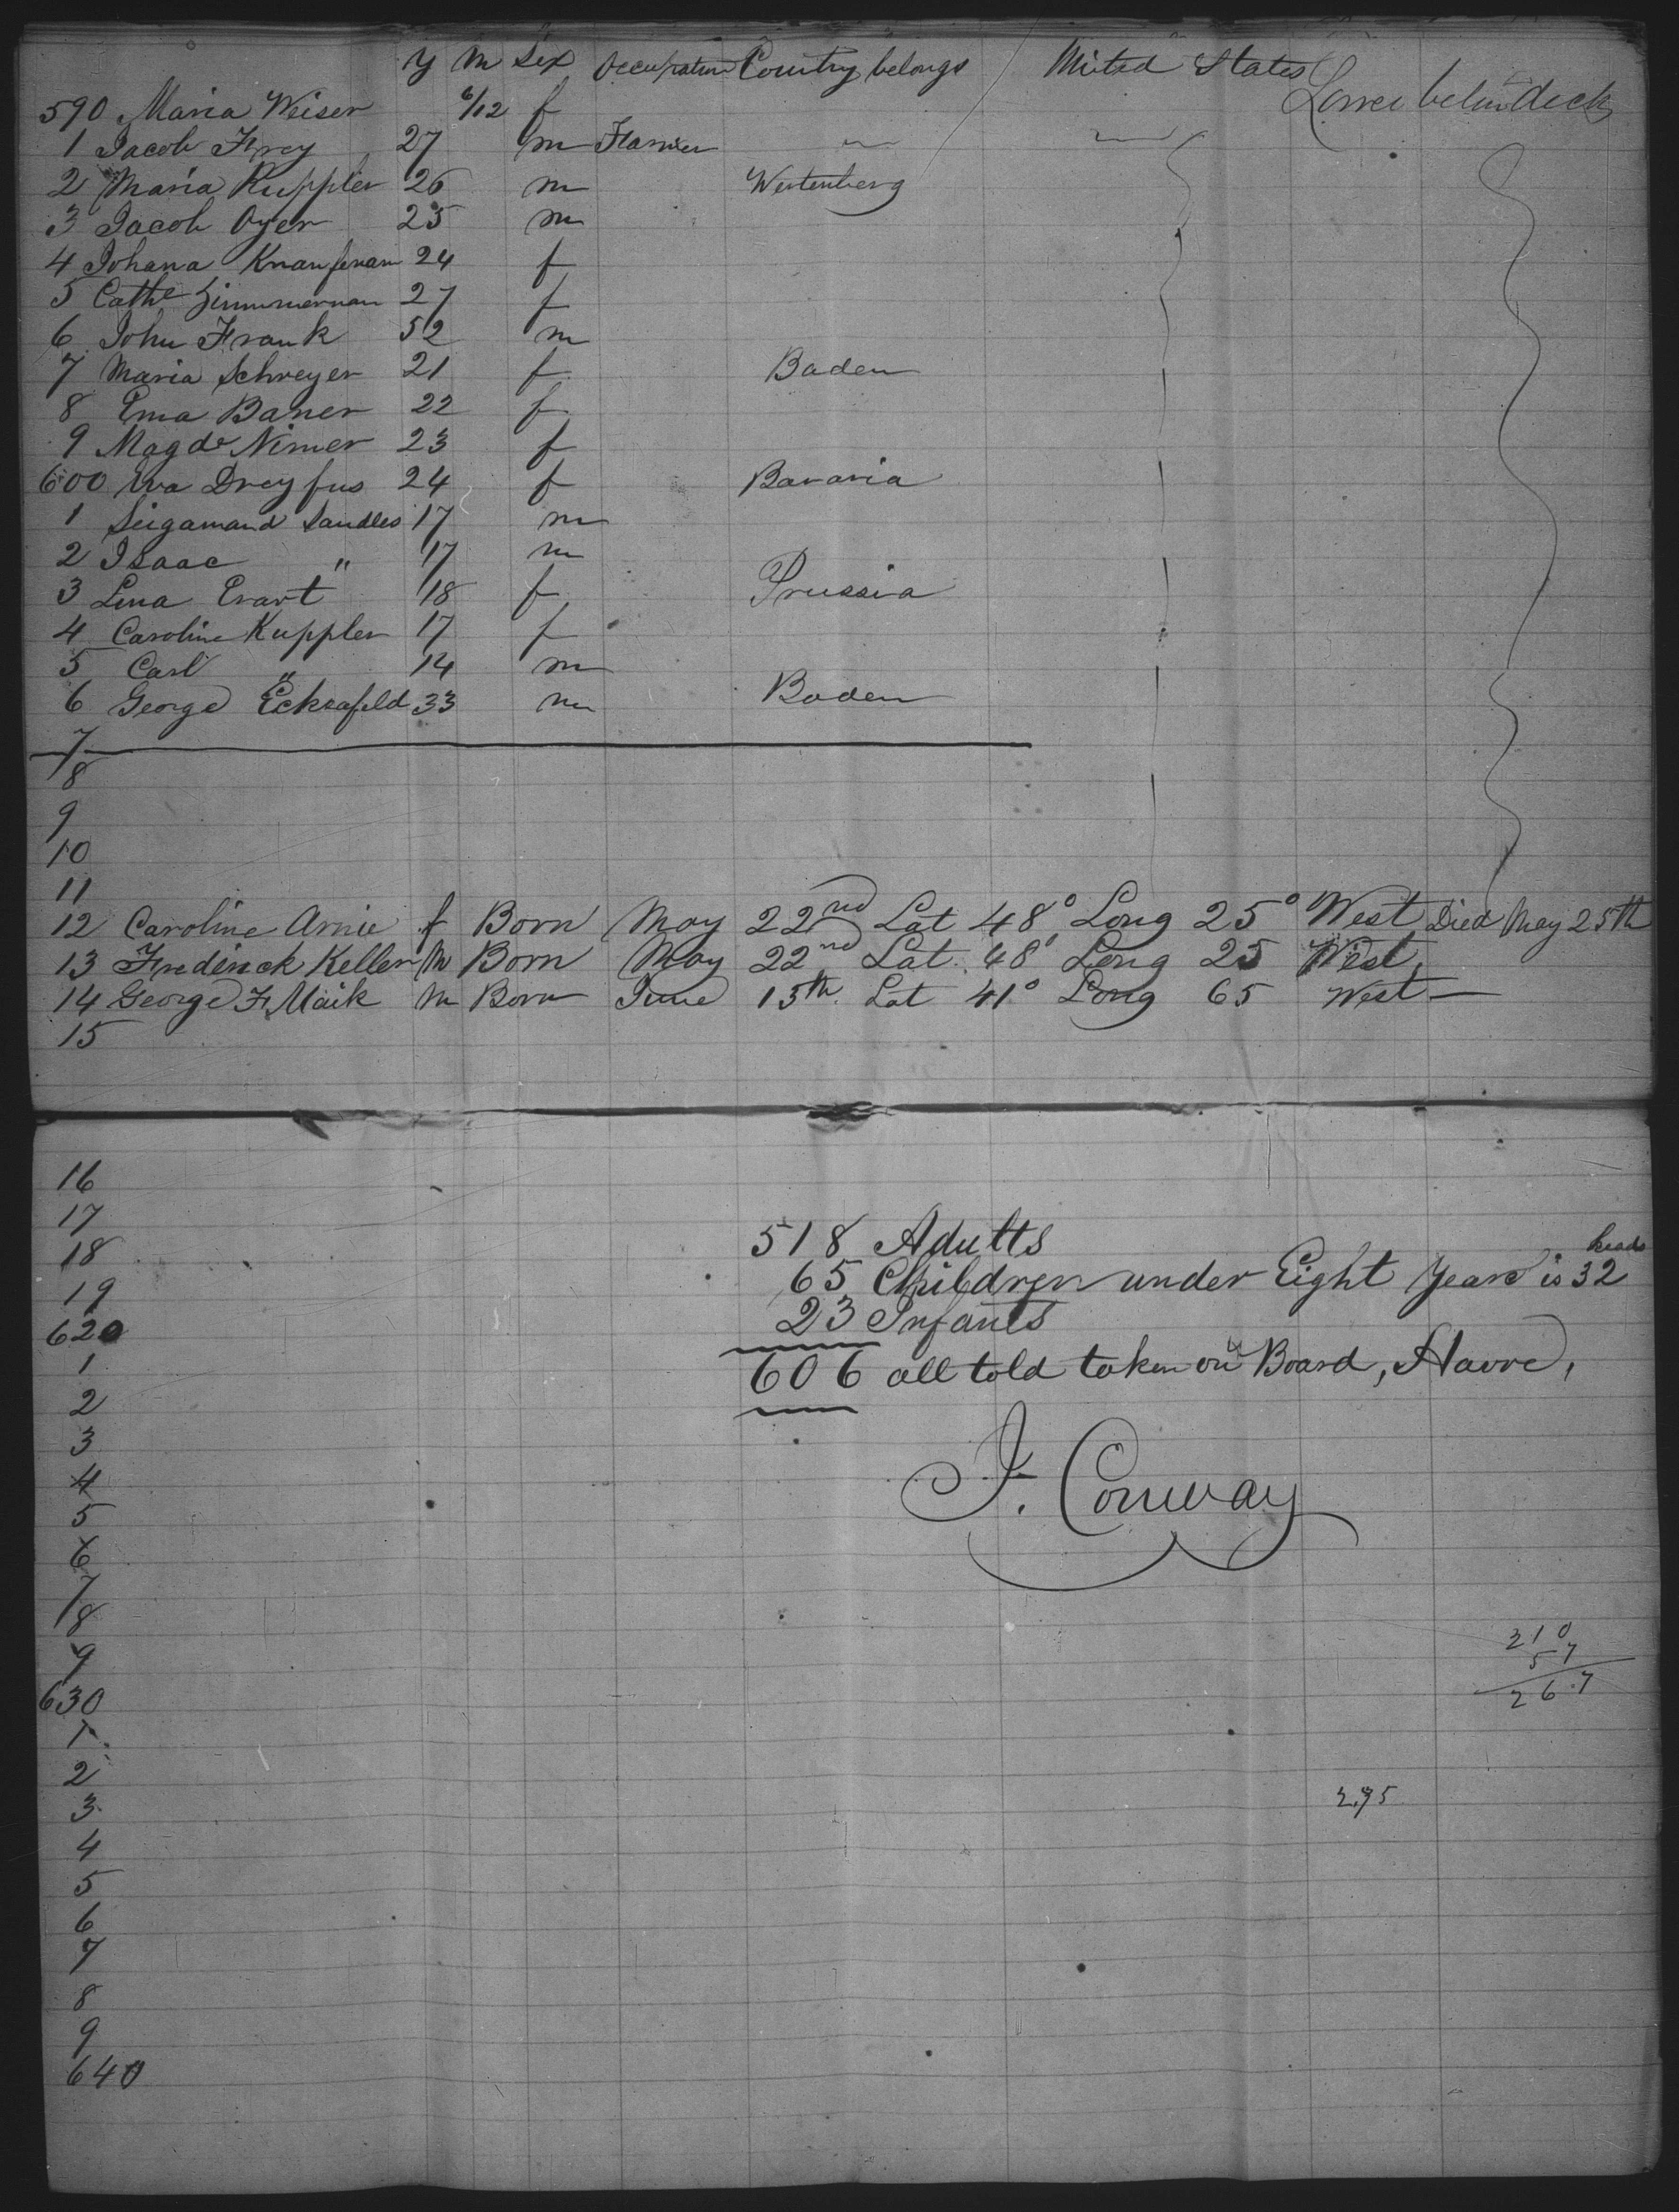 Y M Sex Occupation Country belongs United States Lower below deck
590 Maria Weiser 6/12 f
1 Jacob Frey 27 m Farmer
2 Maria Kuppler 26 m Wertenberg
3 Jacob Oyer 25 m
4 Johana 24 f
5 Cathe Zimmerman 27 f
6 John Frank 52 m
7 Maria Schreyer 21 f Baden
8 Ema Baner 22 f
9 Magde Nimer 23 f
600 Eva Dreyfus 24 f Bavaria
1 Seigamand Sandles 17 m
2 Isaac " 17 m
3 Lina Erart 18 f Prussia
4 Caroline Kuppler 17 f
5 Carl " 14 m
6 George 33 m Baden
7
8
9
10
11
12 Caroline Amie f Born May 22nd Lat 48° Long 25° West Died May 25th
13 Frederick Keller M Born May 22nd Lat. 48° Long 25 West.
14 George F. Maik m Born June 15th. Lat 41° Long 65 West —
15
16
17
18
19
620
1
2
3
4
5
6
7
8
9
630
1
2
3
4
5
6
7
8
9
640
518 Adults
65 Children under Eight Years is 32 heads
23 Infants
606 all told taken on Board, Havre,
J. Conway
210
57
267